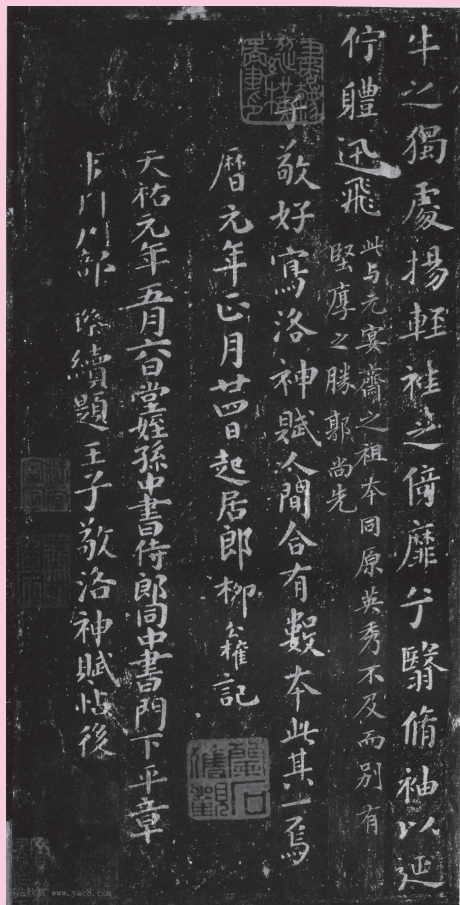 牛之獨處揚輕袿之倚靡兮翳脩袖以延
佇軆迅飛
此与元宴齋之祖本同原英秀不及而别有
堅厚之勝郭尚先
子敬好寫洛神賦人間合有數本此其一焉
曆元年正月廿四日起居郎柳公權記
天祐元年五月六日堂姪孫中書侍郎同中書門下平章
事 戶部 璨續題王子敬洛神賦帖後
www.yac8.com